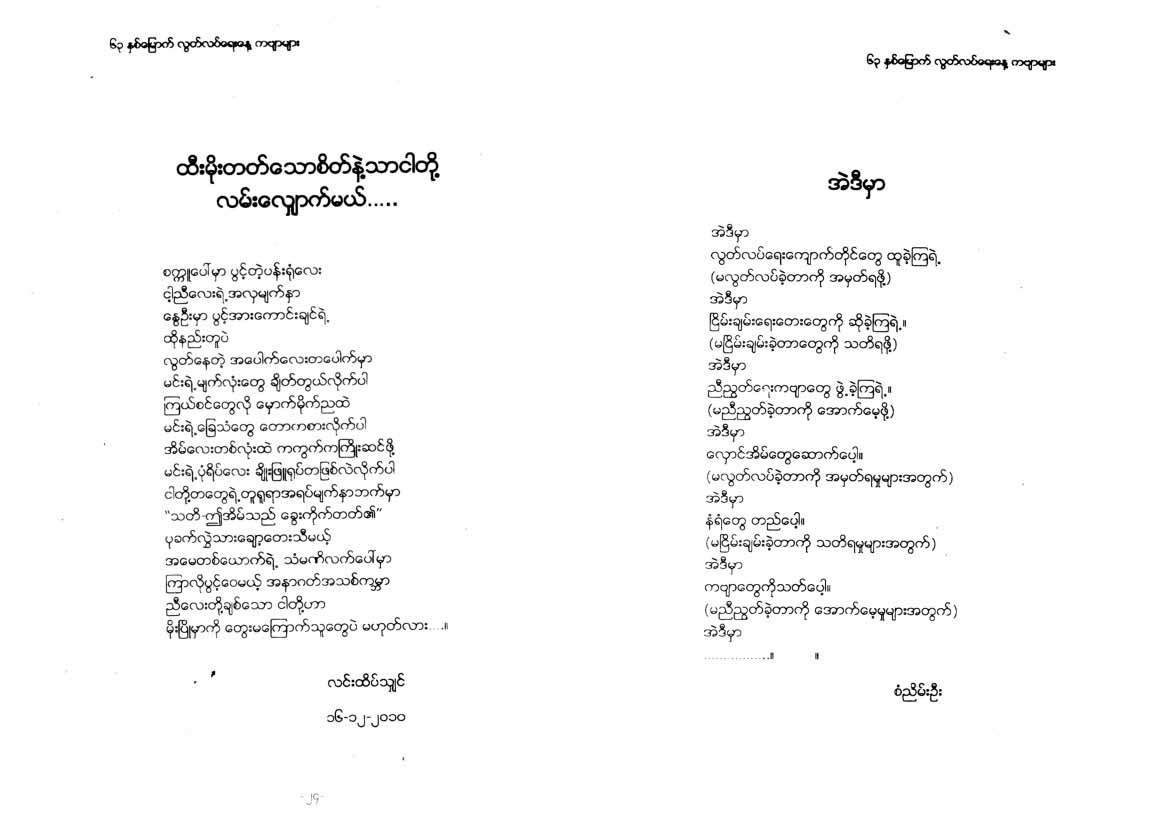 ၆၃ နှစ်မြောက် လွတ်လပ်ရေးနေ့ ကဗျာများ
ထီးမိုးတတ်သောစိတ်နဲ့သာငါတို့
လမ်းလျှောက်မယ်.....
စက္ကူပေါ်မှာ ပွင့်တဲ့ပန်းရုံလေး
ငါ့ညီလေးရဲ့အလှမျက်နှာ
နွေဦးမှာ ပွင့်အားကောင်းချင်ရဲ့
ထိုနည်းတူပဲ
လွတ်နေတဲ့ အပေါက်လေးတပေါက်မှာ
မင်းရဲ့မျက်လုံးတွေ ချိတ်တွယ်လိုက်ပါ
ကြယ်စင်တွေလို မှောက်မိုက်ညထဲ
မင်းရဲ့ခြေသံတွေ တောကစားလိုက်ပါ
အိမ်လေးတစ်လုံးထဲ ကကွက်ကကြိုးဆင်ဖို့
မင်းရဲ့ပုံရိပ်လေး ချိုးဖြူရုပ်တဖြစ်လဲလိုက်ပါ
ငါတို့တတွေရဲ့တူရူရာအရပ်မျက်နှာဘက်မှာ
"သတိ-ဤအိမ်သည် ခွေးကိုက်တတ်၏"
ပုခက်လွှဲသားချော့တေးသီမယ့်
အမေတစ်ယောက်ရဲ့ သံမဏိလက်ပေါ်မှာ
ကြာလိုပွင့်ဝေမယ့် အနာဂတ်အသစ်ကမ္ဘာ
ညီလေးတို့ချစ်သော ငါတို့ဟာ
မိုးပြိုမှာကို တွေးမကြောက်သူတွေပဲ မဟုတ်လား....။
လင်းထိပ်သျှင်
၁၆-၁၂-၂၀၁၀
-၂၄-
၆၃ နှစ်မြောက် လွတ်လပ်ရေးနေ့ ကဗျာများ
အဲဒီမှာ
အဲဒီမှာ
လွတ်လပ်ရေးကျောက်တိုင်တွေ ထူခဲ့ကြရဲ့
(မလွတ်လပ်ခဲ့တာကို အမှတ်ရဖို့)
အဲဒီမှာ
ငြိမ်းချမ်းရေးတေးတွေကို ဆိုခဲ့ကြရဲ့။
(မငြိမ်းချမ်းခဲ့တာတွေကို သတိရဖို့)
အဲဒီမှာ
ညီညွတ်ရေးကဗျာတွေ ဖွဲ့ခဲ့ကြရဲ့။
(မညီညွတ်ခဲ့တာကို အောက်မေ့ဖို့)
အဲဒီမှာ
လှောင်အိမ်တွေဆောက်ပေါ့။
(မလွတ်လပ်ခဲ့တာကို အမှတ်ရမှုများအတွက်)
အဲဒီမှာ
နံရံတွေ တည်ပေါ့။
(မငြိမ်းချမ်းခဲ့တာကို သတိရမှုများအတွက်)
အဲဒီမှာ
ကဗျာတွေကိုသတ်ပေါ့။
(မညီညွတ်ခဲ့တာကို အောက်မေ့မှုများအတွက်)
အဲဒီမှာ
................။ ။
စံညိမ်းဦး